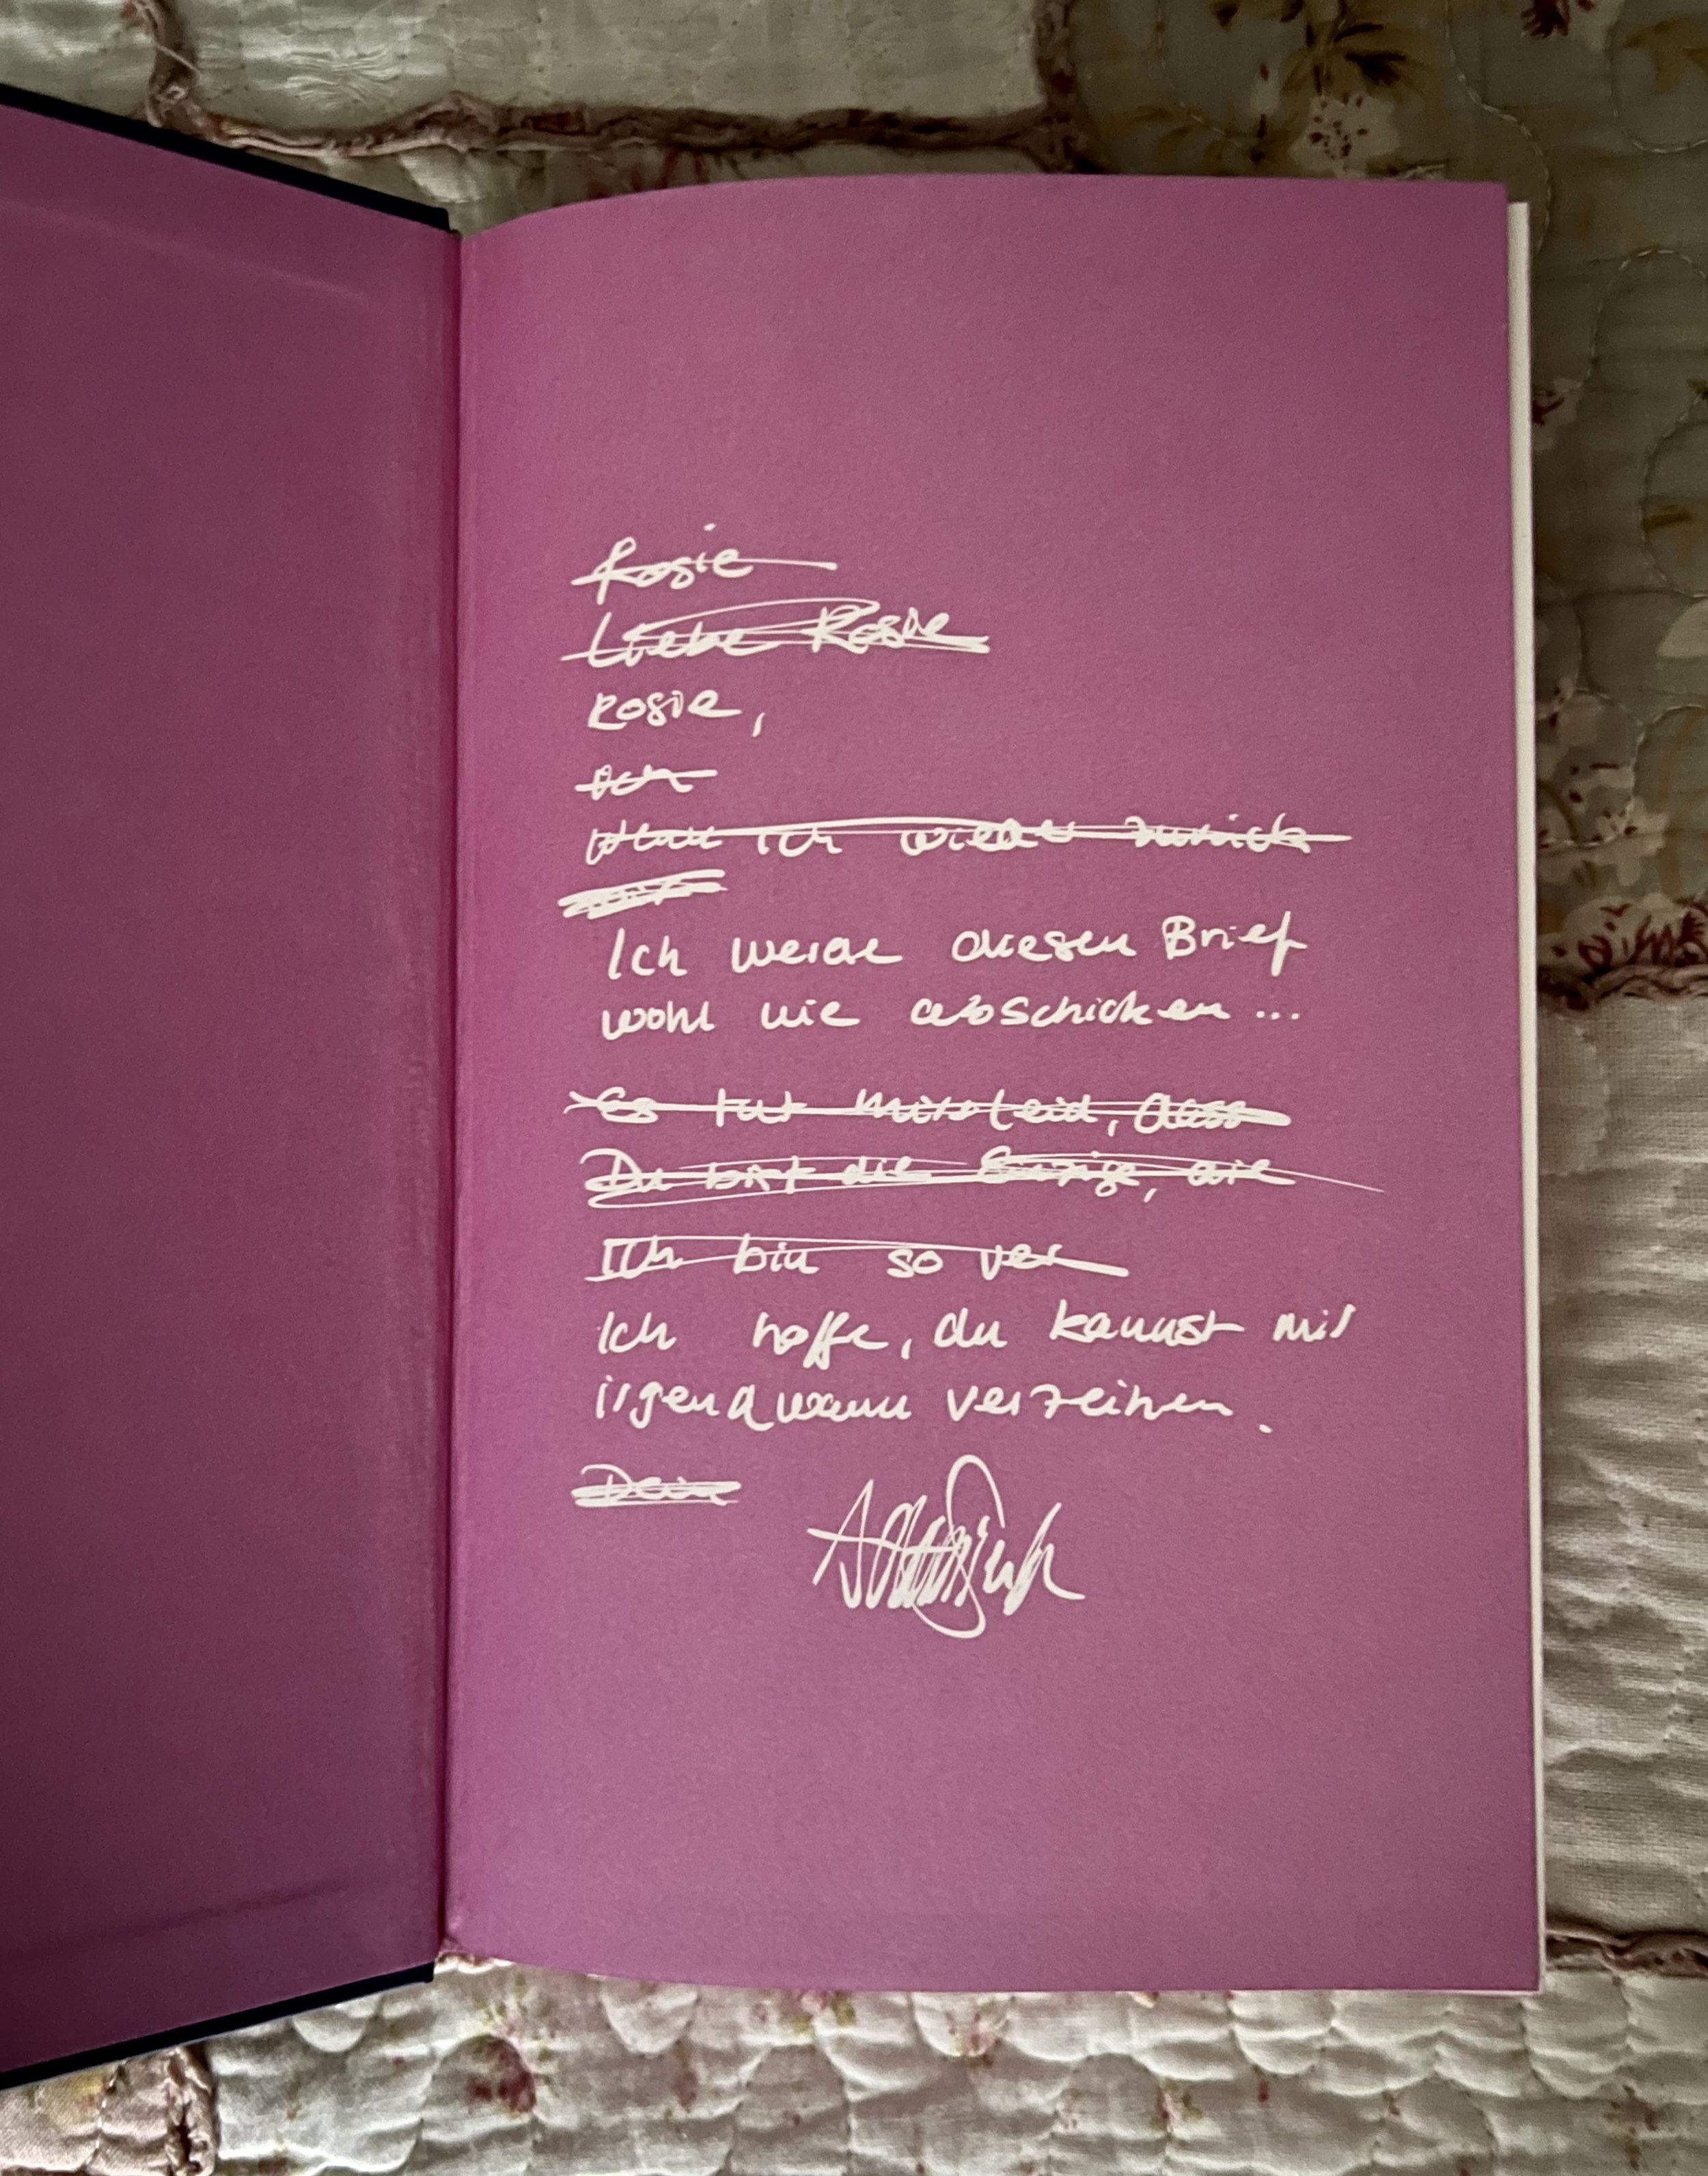 Rosie
Liebe Rosie
Rosie,
Ich
Wenn ich wieder zurück
Ich werde diesen Brief
wohl nie abschicken...
Es tut mir leid, dass
Du bist die Einzige, die
Ich bin so ver
Ich hoffe, du kannst mir
irgendwann verzeihen.
Dein